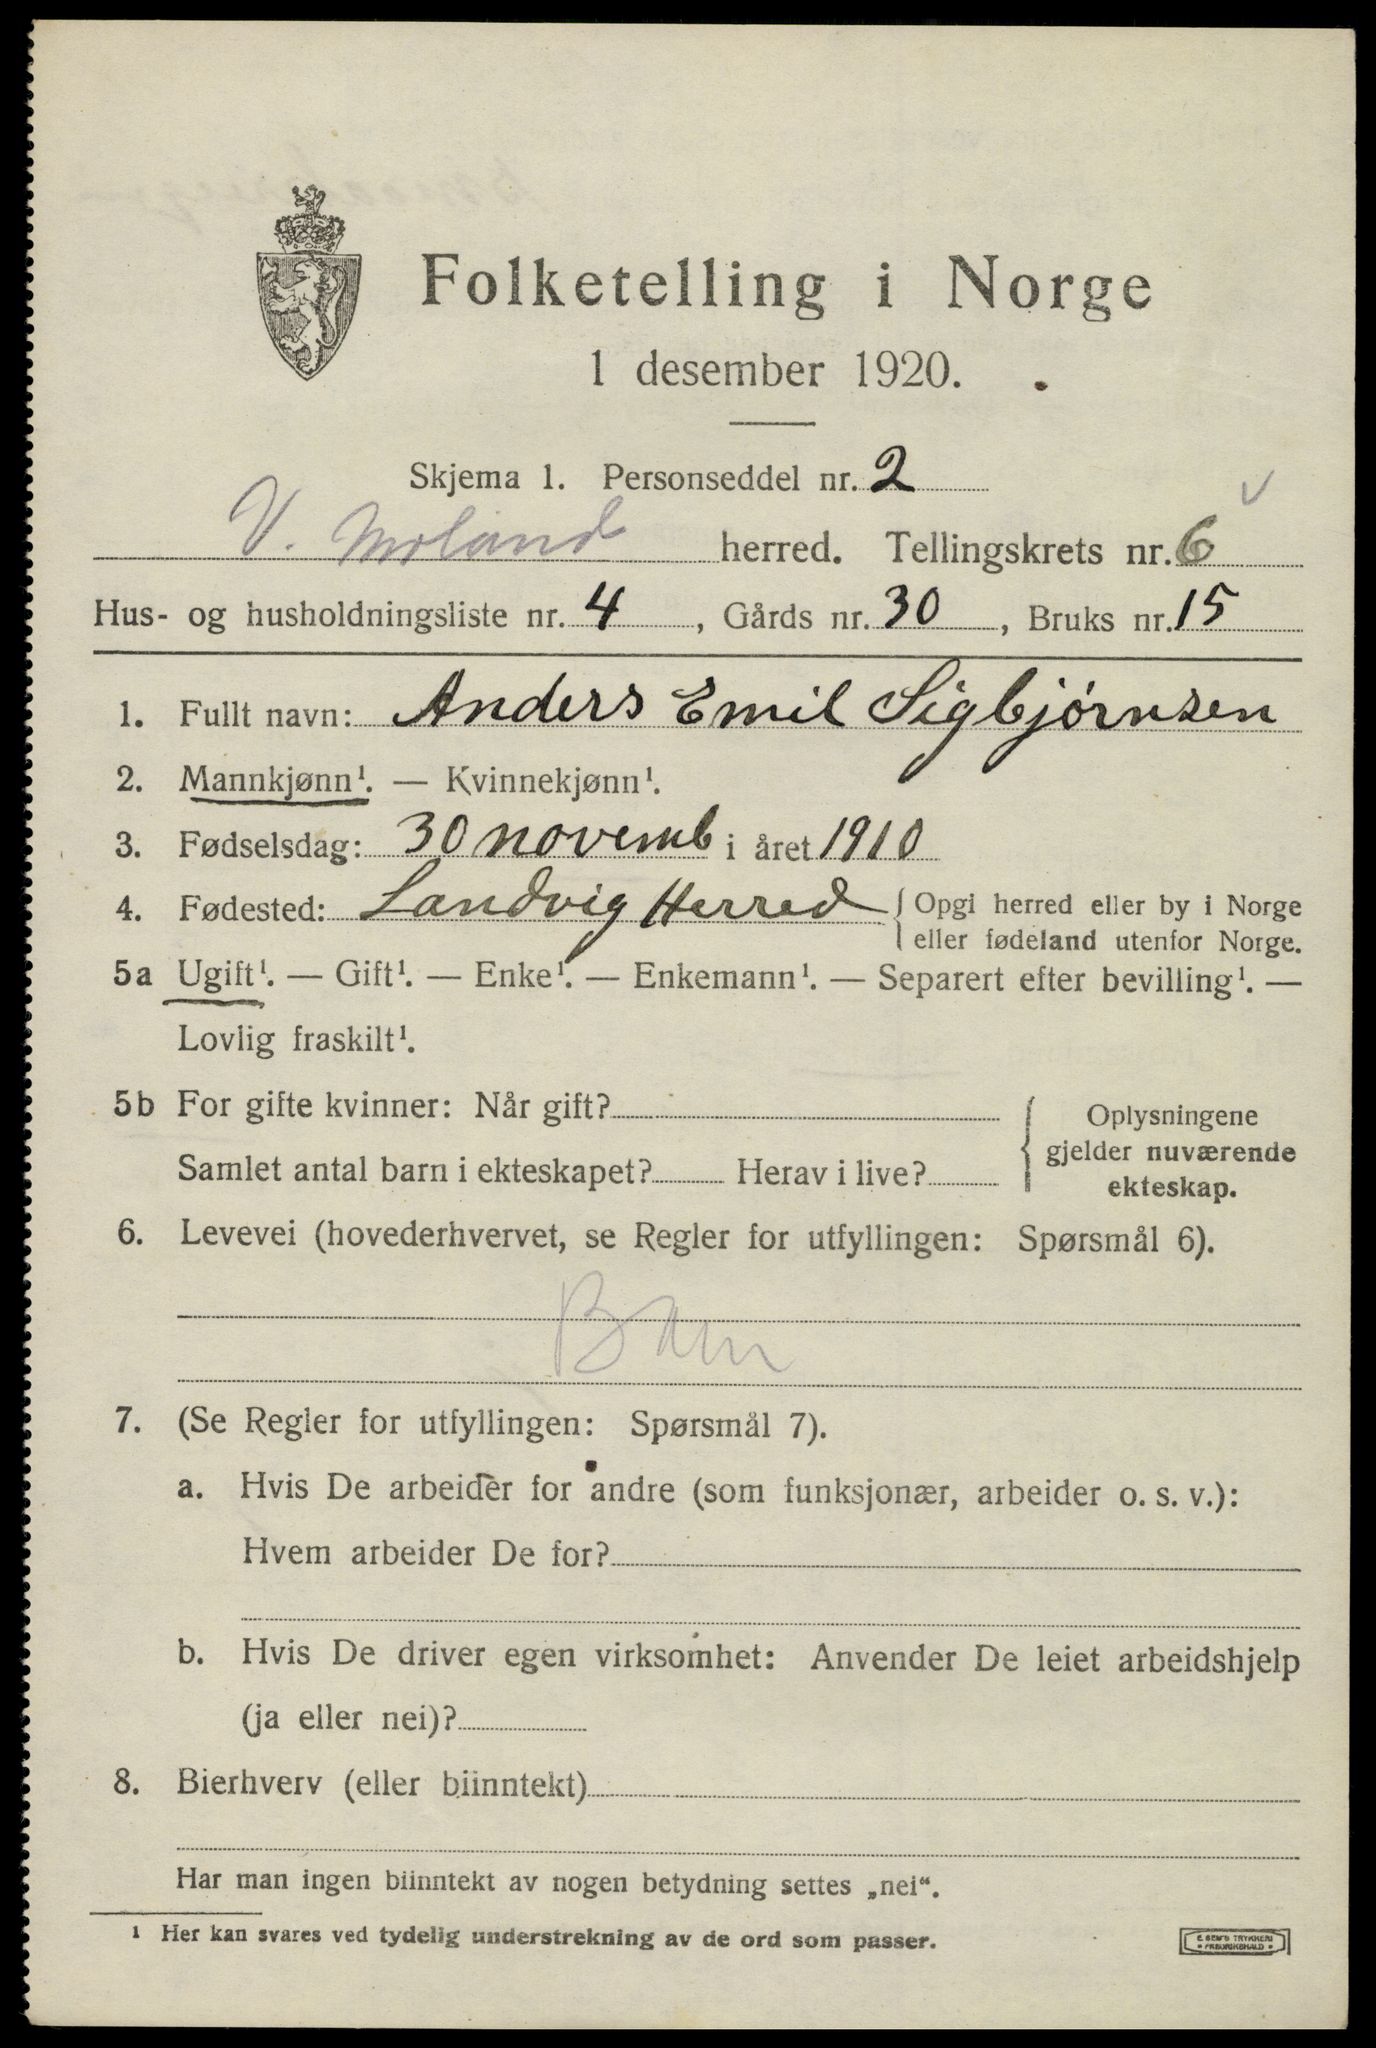 Folketelling i Norge
1 desember 1920.
Skjema 1. Personseddel nr. 2
V. Moland herred. Tellingskrets nr. 6
Hus- og husholdningsliste nr. 4, Gårds nr. 30, Bruks nr. 15
1. Fullt navn: Anders Emil Sigbjørnsen
2. Mannkjønn¹. — Kvinnekjønn¹.
3. Fødselsdag: 30 novemb i året 1910
4. Fødested: Landvig Herred { Opgi herred eller by i Norge
eller fødeland utenfor Norge.
5a Ugift¹. — Gift¹. — Enke¹. — Enkemann¹. — Separert efter bevilling¹. —
Lovlig fraskilt¹.
5b For gifte kvinner: Når gift?
Samlet antal barn i ekteskapet? Herav i live?
{ Oplysningene
gjelder nuværende
ekteskap.
6. Levevei (hovederhvervet, se Regler for utfyllingen: Spørsmål 6).
Barn
7. (Se Regler for utfyllingen: Spørsmål 7).
a. Hvis De arbeider for andre (som funksjonær, arbeider o. s. v.):
Hvem arbeider De for?
b. Hvis De driver egen virksomhet: Anvender De leiet arbeidshjelp
(ja eller nei)?
8. Bierhverv (eller biinntekt)
Har man ingen biinntekt av nogen betydning settes „nei“.
¹ Her kan svares ved tydelig understrekning av de ord som passer.